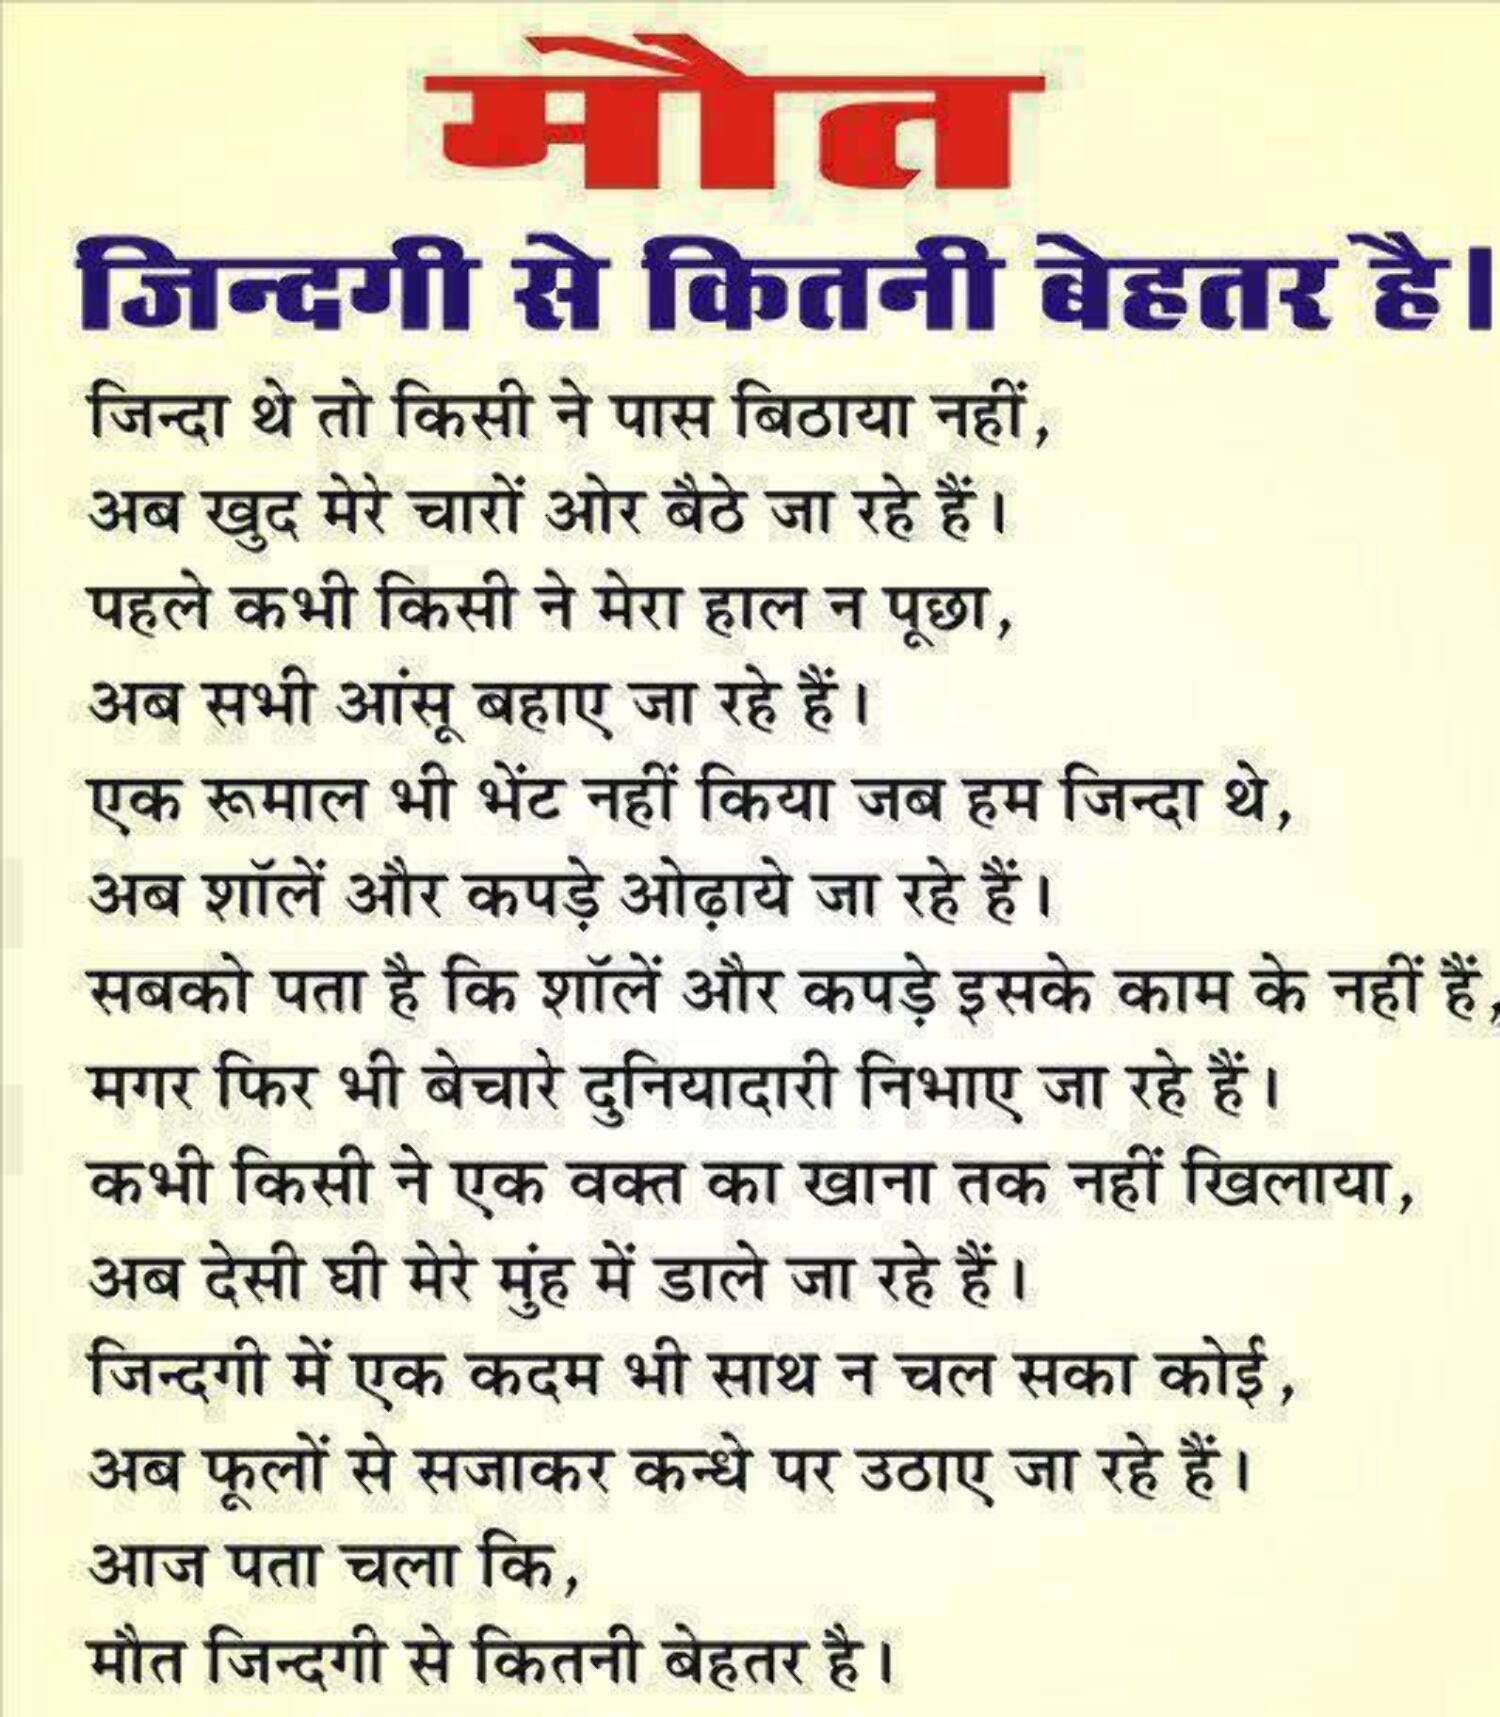 मौत
जिन्दगी से कितनी बेहतर है।
जिन्दा थे तो किसी ने पास बिठाया नहीं,
अब खुद मेरे चारों ओर बैठे जा रहे हैं।
पहले कभी किसी ने मेरा हाल न पूछा,
अब सभी आंसू बहाए जा रहे हैं।
एक रूमाल भी भेंट नहीं किया जब हम जिन्दा थे,
अब शॉलें और कपड़े ओढ़ाये जा रहे हैं।
सबको पता है कि शॉलें और कपड़े इसके काम के नहीं हैं,
मगर फिर भी बेचारे दुनियादारी निभाए जा रहे हैं।
कभी किसी ने एक वक्त का खाना तक नहीं खिलाया,
अब देसी घी मेरे मुंह में डाले जा रहे हैं।
जिन्दगी में एक कदम भी साथ न चल सका कोई,
अब फूलों से सजाकर कन्धे पर उठाए जा रहे हैं।
आज पता चला कि,
मौत जिन्दगी से कितनी बेहतर है।